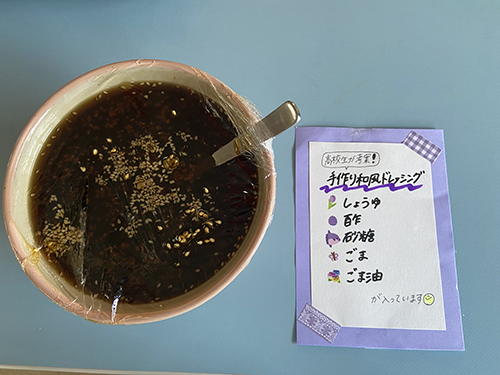 高校生が考案!
手作り和風ドレッシング
しょうゆ
酢
砂糖
ごま
ごま油
が入っています